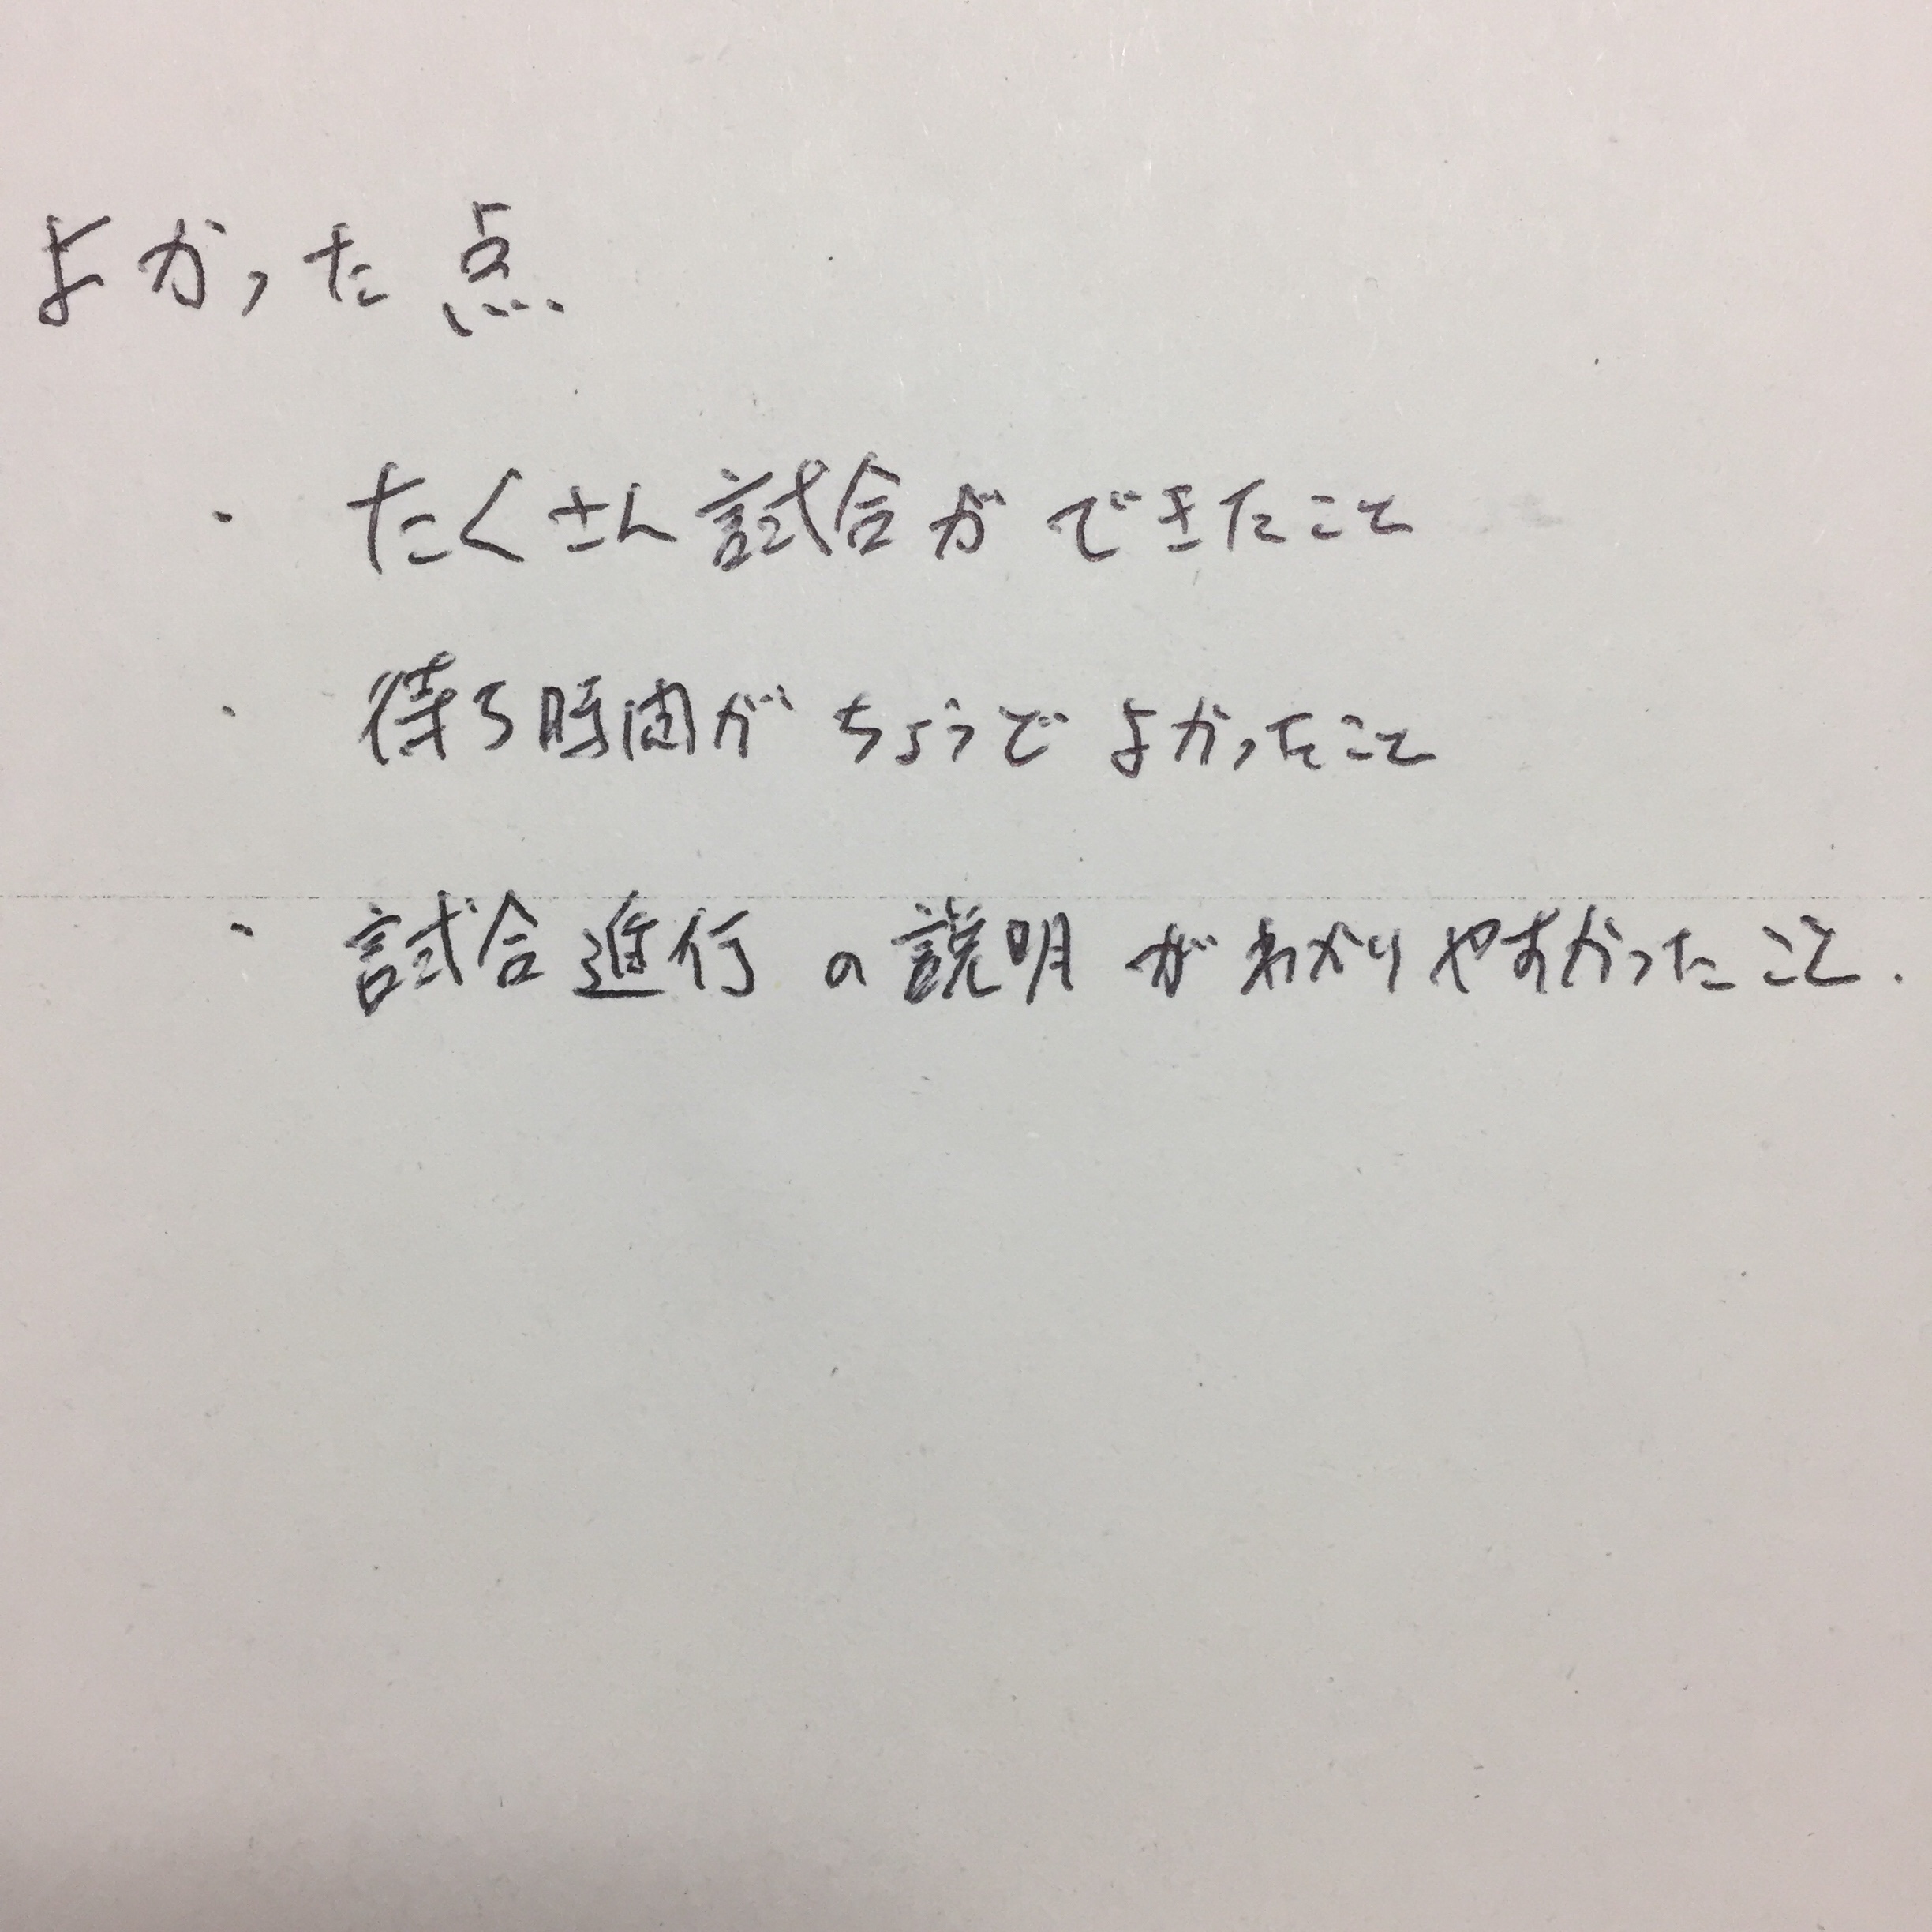 よかった点
・ たくさん試合ができたこと
・ 待ち時間がちょうどよかったこと
・ 試合進行の説明がわかりやすかったこと.